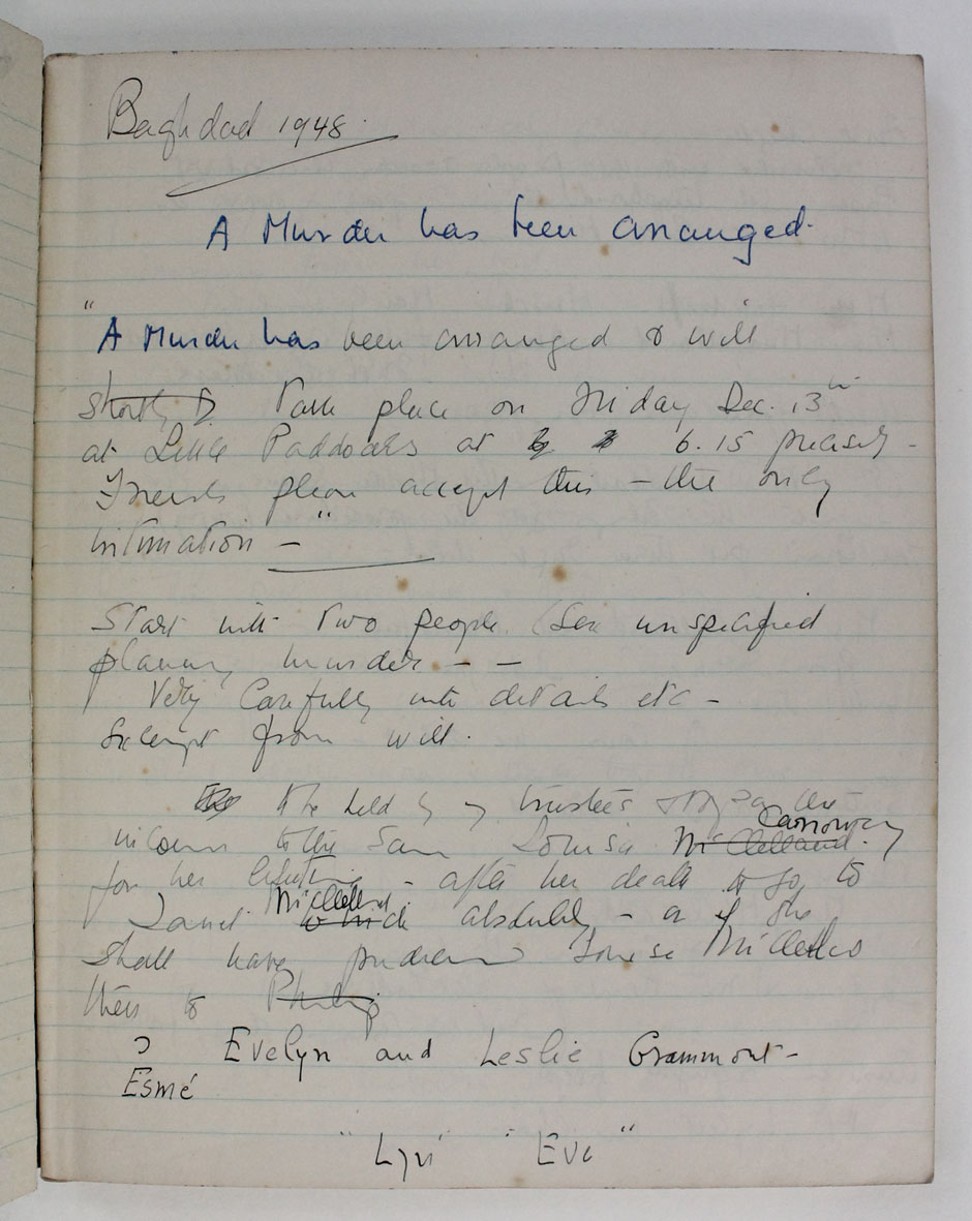 Baghdad 1948.
A Murder has been arranged.
"A Murder has been arranged & will"
Shortly Take place on Friday Dec. 13th
at Little Paddocks at 6.15 precisely -
Friends please accept this - the only
intimation - "
Start with two people (Sex unspecified
planning murder - -
Very Carefully with details etc -
Excerpt from will.
To be held by my trustees pay the
income to the Louisa McClelland. Carroway
for her lifetime - after her death to go to
Janet McClelland. absolutely - or if she
shall have Louise
then to Philip
? Evelyn and Leslie Grammont -
Esmé
"Lyn" "Eve"